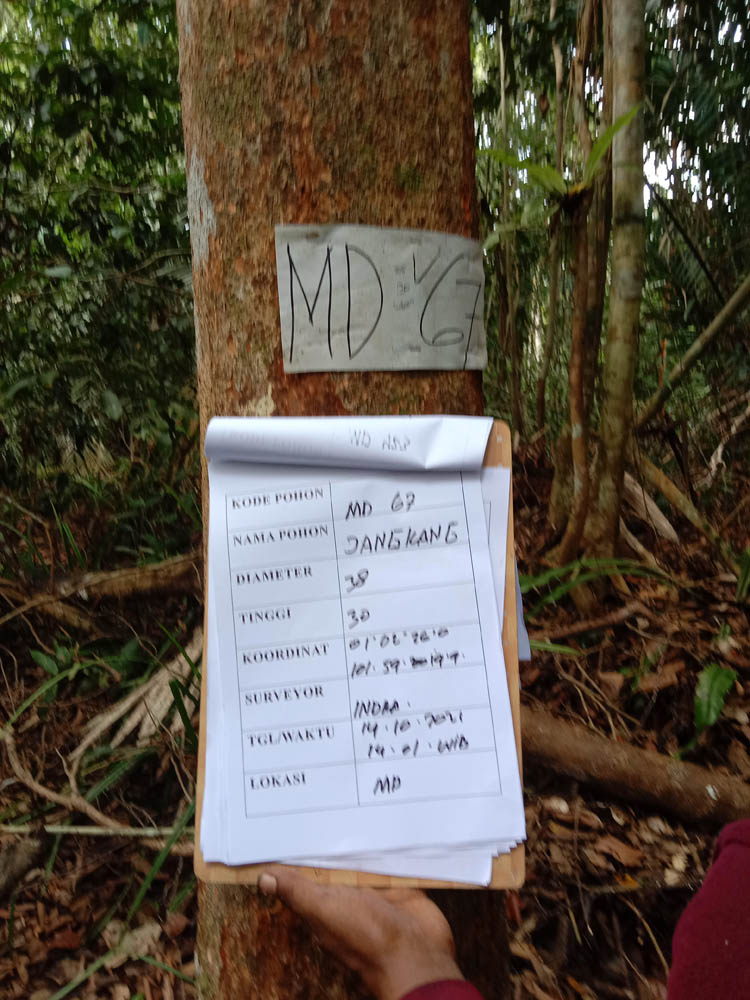 MD 67
KODE POHON MD 67
NAMA POHON JANGKANG
DIAMETER 38
TINGGI 30
KOORDINAT 01°02'26.0
101.59.19.9.
SURVEYOR INDRA.
TGL/WAKTU 14.10.2021
14.01.WIB
LOKASI MD